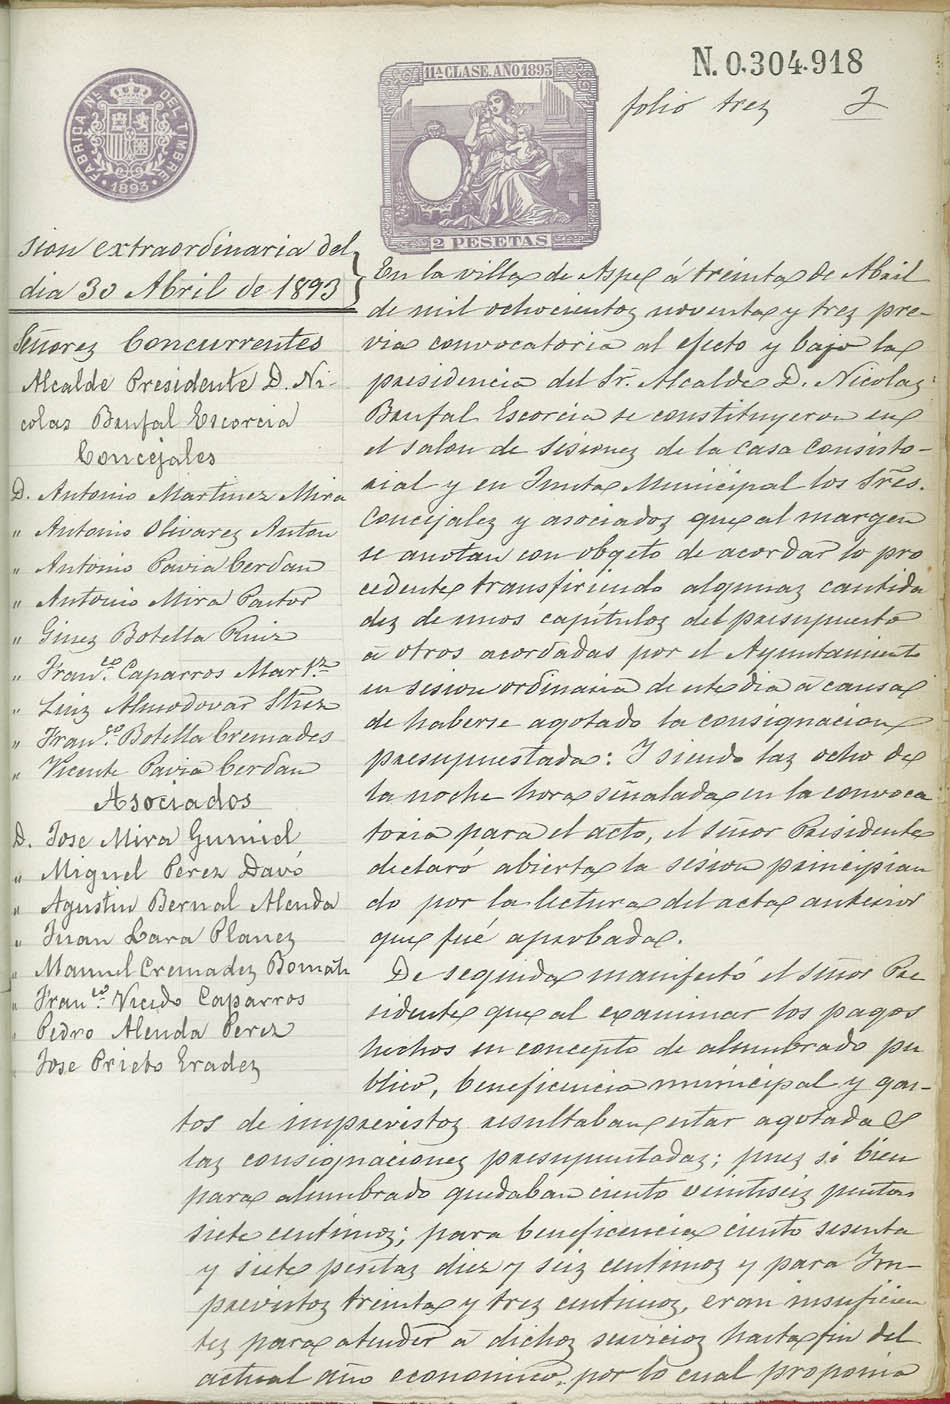 N. 0.304.918
folio trez 3
FABRICA NL. DEL TIMBRE
1893
11A CLASE. AÑO 1893
2 PESETAS
sion extraordinaria del
dia 30 Abril de 1893
Señorez Concurrentes
Alcalde Presidente D. Ni-
colas Banfal Escorcia
Concejales
D. Antonio Martinez Mira
" Antonio Olivarez Anton
" Antonio Pavia Cerdan
" Antonio Mira Pastor
" Ginez Botella Ruiz
" Fran.co Caparros Mart.z
" Luiz Almodovar
" Fran.co Botella Cremades
" Vicente Pavia Cerdan
Asociados
D. Jose Mira Gumiel
" Miguel Perez Davó
" Agustin Bernal Alenda
" Juan Lara Planez
" Manuel Cremadez
" Fran.co Vicedo Caparros
" Pedro Alenda Perez
Jose Prieto Eradez
En la villa de Aspe á treinta de Abril
de mil ochocientoz noventa y trez pre-
via convocatoria al efecto y bajo la
presidencia del Sr. Alcalde D. Nicolaz
Banfal Escorcia se constituyeron en
el salon de sesionez de la casa consisto-
rial y en Junta Municipal los Sres.
Concejalez y asociadoz que al margen
se anotan con obgeto de acordar lo pro
cedente transfiriendo algunaz cantida
dez de unos capítuloz del presupuesto
á otros acordadas por el Ayuntamiento
en sesion ordinaria de este dia á causa
de haberse agotado la consignacion
presupuestada: Y siendo laz ocho de
la noche hora señalada en la convoca
toria para el acto, el señor Presidente
declaró abierta la sesion principian
do por la lectura del acta anterior
que fué aprobada.
De seguida manifestó el señor Pre
sidente que al examinar los pagos
hechos en concepto de alumbrado pu
blico, beneficencia municipal y gas-
tos de imprevistoz resultaban estar agotadas
laz consignacionez presupuestadaz; puez si bien
para alumbrado quedaban ciento veintiseiz pesetas
siete centimoz; para beneficencia ciento sesenta
y siete pesetaz diez y seiz centimoz y para Im-
previstoz treinta y trez centimoz, eran insuficien
tez para atender á dichoz servicioz hasta fin del
actual año economico, por lo cual proponia